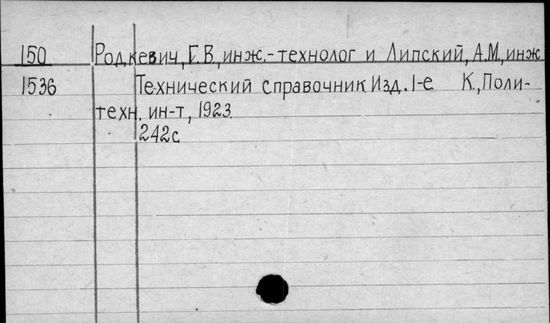 150 Родкевич, Г.В., инж.-технолог и Липский, А.М., инж
1536 Технический справочник Изд. 1-е К., Поли-
техн. ин-т, 1923.
242с